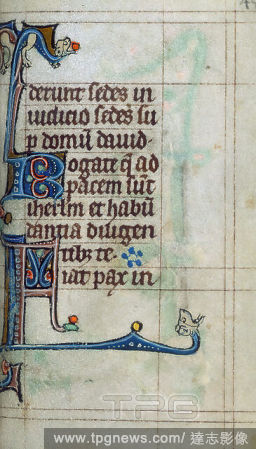 derunt sedes in
iudicio sedes su
p domū dauid.
Rogate q̄ ad
pacem sūt
iherlm et habū
dantia diligen
tibz te
Fiat pax in
TPG
www.tpgnews.com/達志影像